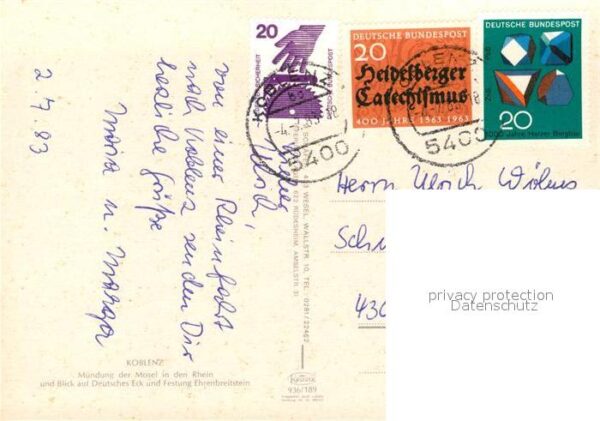 2.7.83
Lieber
Ulrich!
von einer Rheinfahrt
nach Koblenz senden Dir
herzliche Grüße
Maria u.
20
JEDERZEIT SICHERHEIT
DEUTSCHE BUNDESPOST
DEUTSCHE BUNDESPOST
20
Heidelberger
Catechismus
400 JAHRE 1563 1963
DEUTSCHE BUNDESPOST
20
1000 Jahre Harzer Bergbau
KOBLENZ
5400
5400
Herrn Ulrich
Sch
430
privacy protection
Datenschutz
WESEL, WALLSTR. 10, TEL. 0281/22462
622 RÜDESHEIM, AMSELSTR.
KOBLENZ
Mündung der Mosel in den Rhein
und Blick auf Deutsches Eck und Festung Ehrenbreitstein
936/189